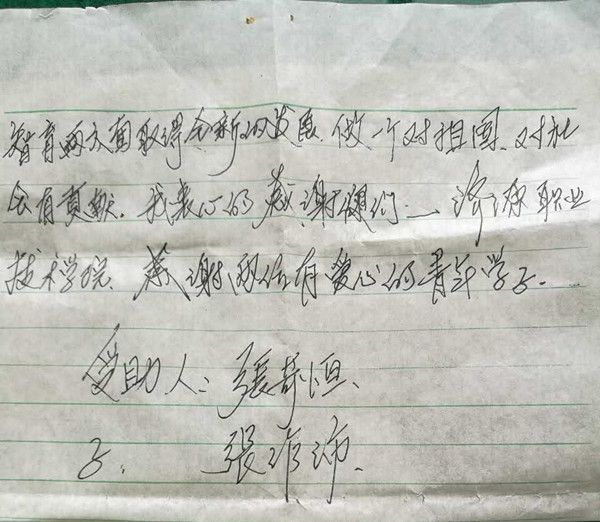 智育两方面取得全新的发展、做一个对祖国、对社
会有贡献。我衷心的感谢你们——济源职业
技术学院、感谢两位有爱心的青年学子。
受助人：张恒、
子、张沛、